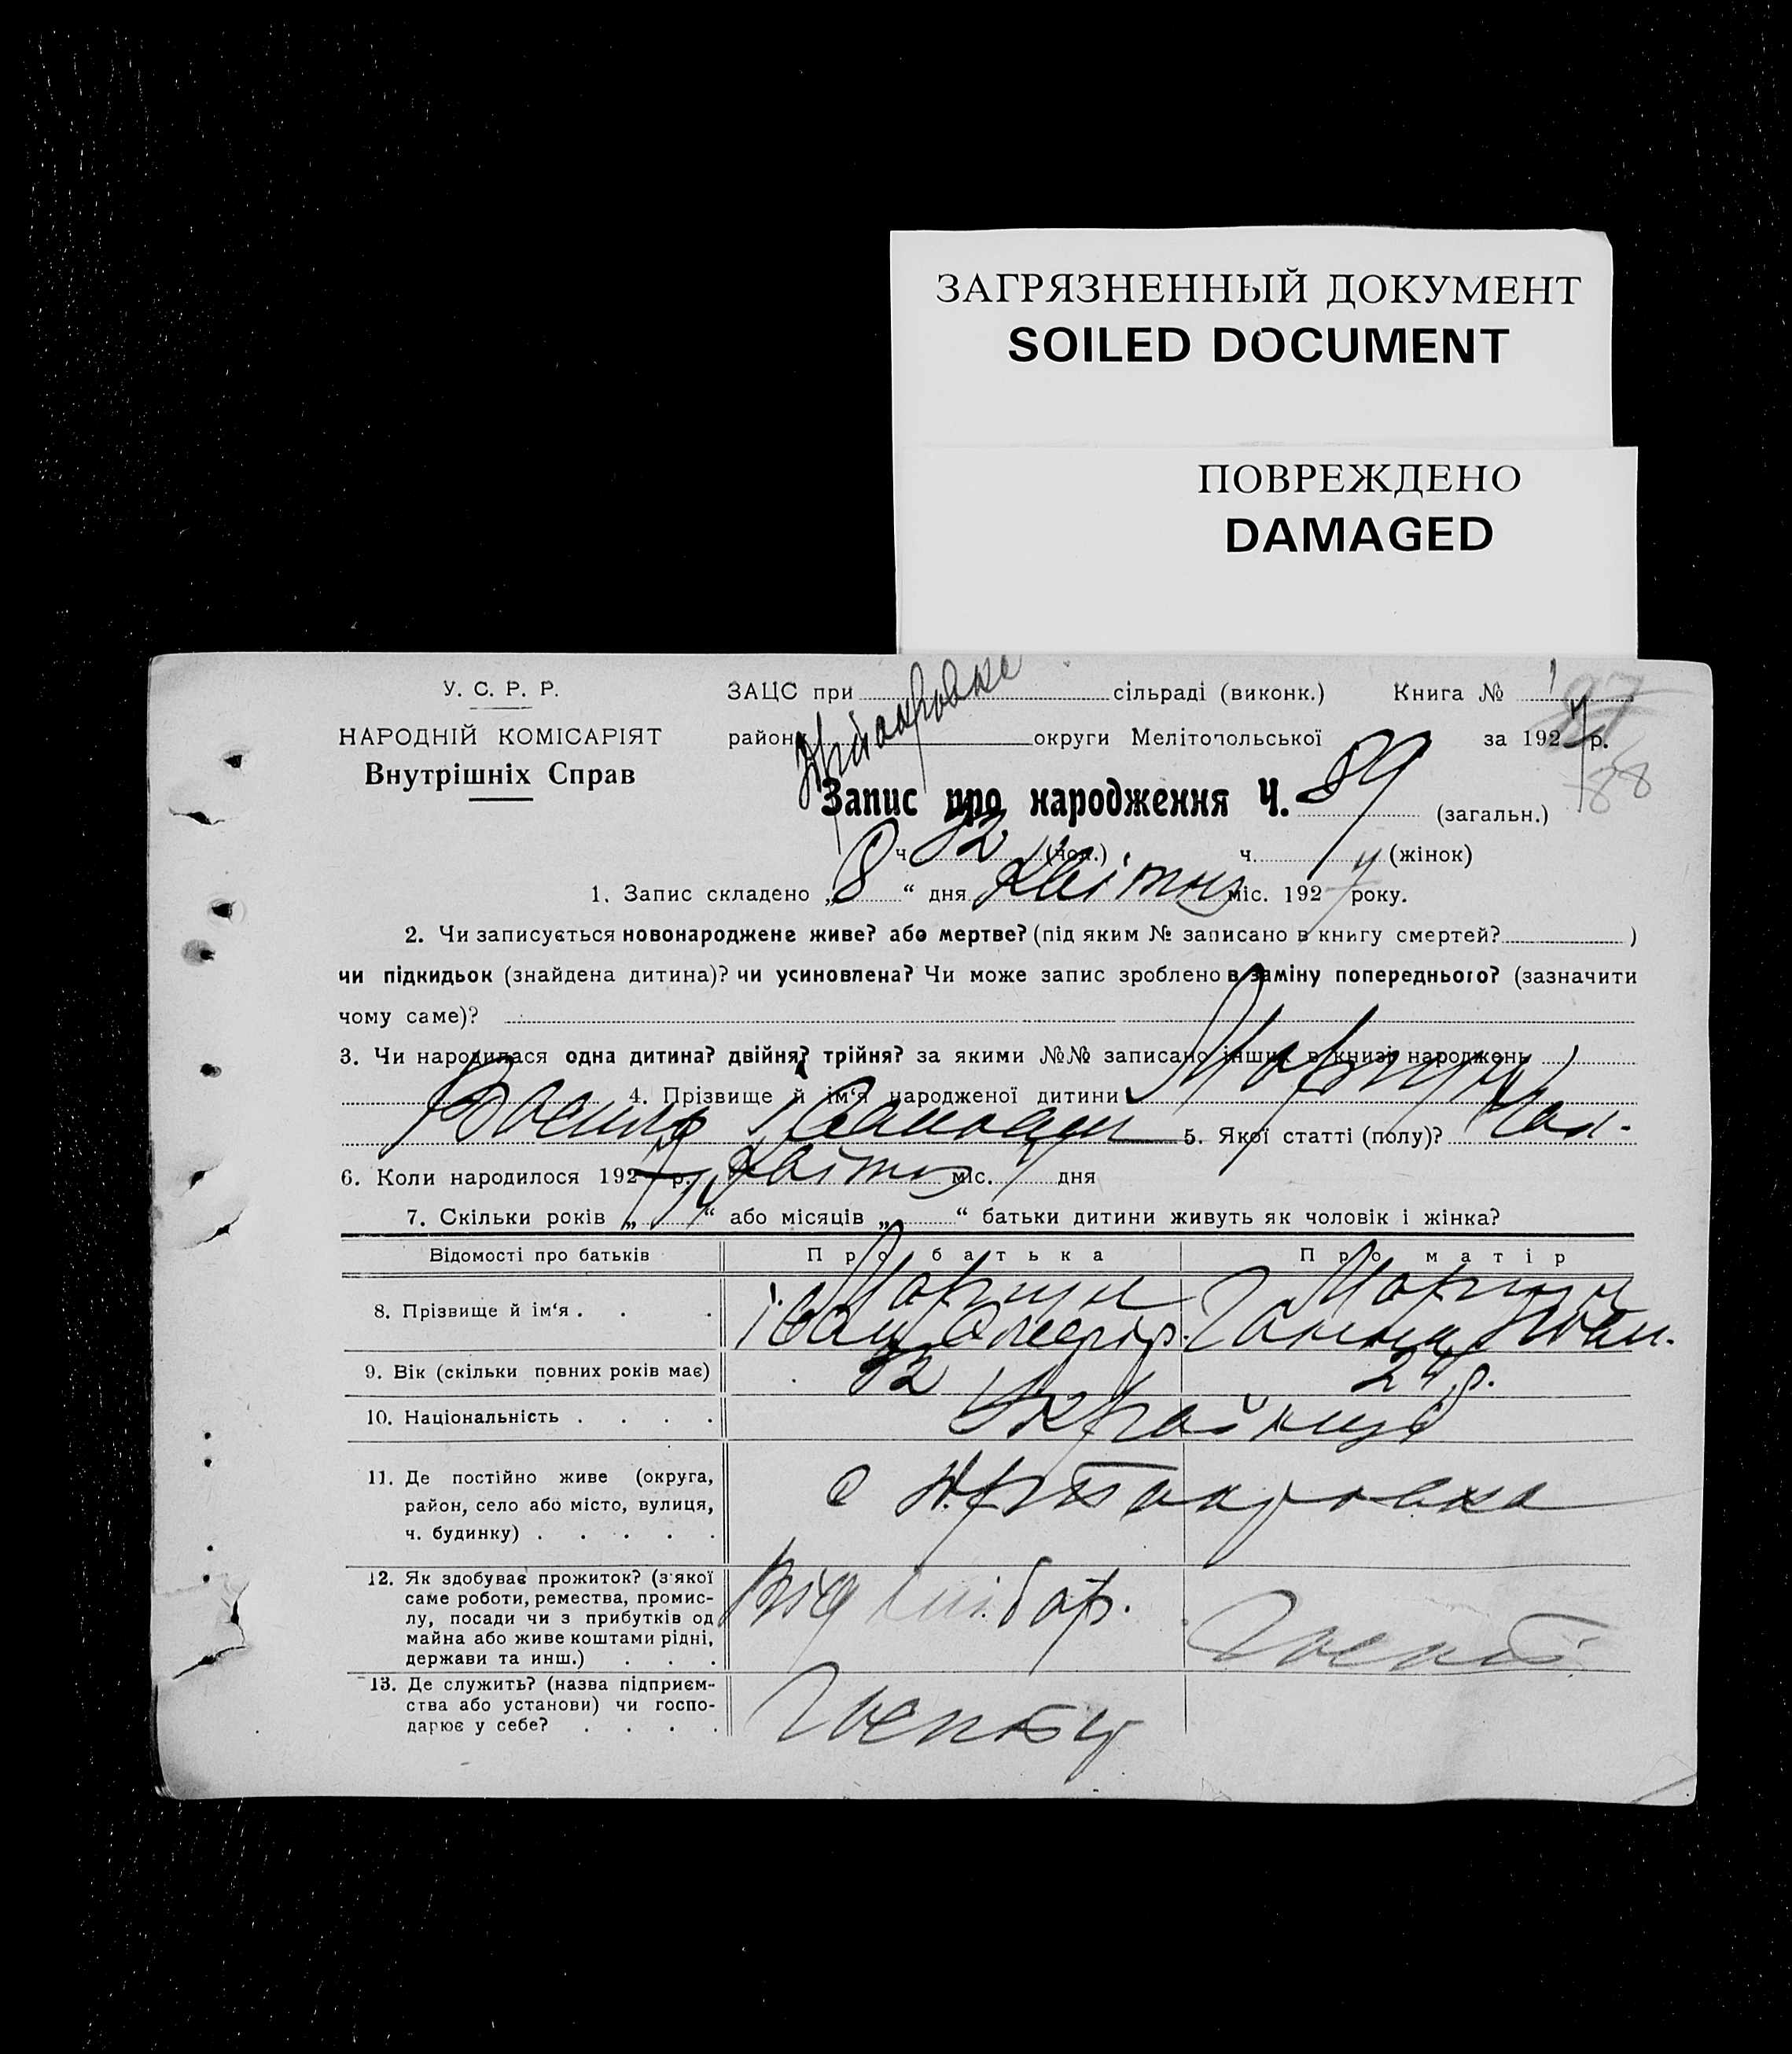 ЗАГРЯЗНЕННЫЙ ДОКУМЕНТ
SOILED DOCUMENT
ПОВРЕЖДЕНО
DAMAGED
У. С. Р. Р.
НАРОДНІЙ КОМІСАРІЯТ
Внутрішніх Справ
ЗАЦС при сільраді (виконк.) Книга №
району округи Мелітопольської за 1927 р.
Запис про народження Ч. 89 (загальн.)
ч. 32 (чол.) ч. (жінок)
1. Запис складено „8“ дня Квітня міс. 1927 року.
2. Чи записується новонароджене живе? або мертве? (під яким № записано в книгу смертей? )
чи підкидьок (знайдена дитина)? чи усиновлена? Чи може запис зроблено в заміну попереднього? (зазначити
чому саме)?
3. Чи народилася одна дитина? двійня? трійня? за якими №№ записано інших в книзі народжень
4. Прізвище й ім‘я народженої дитини
Василь Іванович 5. Якої статті (полу)? Чол.
6. Коли народилося 1927 р. Квітня міс. 7 дня
7. Скільки років „ “ або місяців „ “ батьки дитини живуть як чоловік і жінка?
Відомості про батьків Про батька Про матір
8. Прізвище й ім‘я . . .
Іван Ганна Іван.
9. Вік (скільки повних років має) 32 24 р.
10. Національність . . . . Українці
11. Де постійно живе (округа,
район, село або місто, вулиця,
ч. будинку) . . . . .
с
12. Як здобуває прожиток? (з‘якої
саме роботи, ремества, промис-
лу, посади чи з прибутків од
майна або живе коштами рідні,
держави та инш.) . . .
Від
13. Де служить? (назва підприєм-
ства або установи) чи госпо-
дарює у себе? . . . .